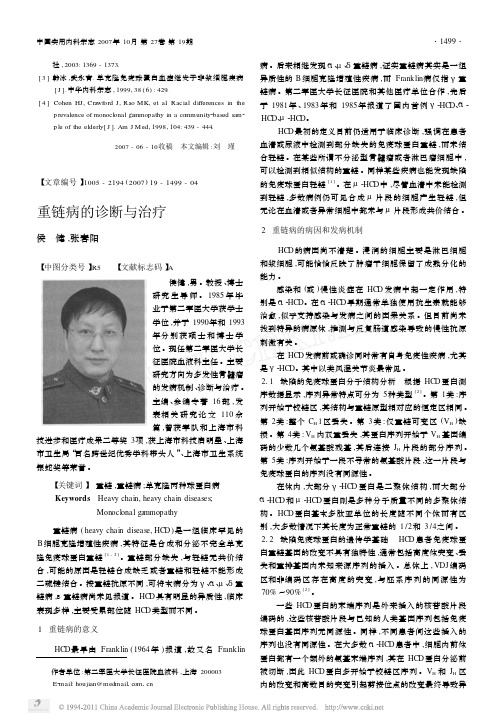 中国实用内科杂志 2007年 10月 第 27卷 第 19期
· 1499 ·
社, 2003: 1369 - 1373.
[3] 韩冰, 武永吉. 单克隆免疫球蛋白血症继发于浆液细胞疾病
[J]. 中华内科杂志, 1999, 38 (6) : 429.
[4] Cohen HJ, Crawford J, Rao MK, et al Racial differences in the
prevalence of monoclonal gammopathy in a community-based sam-
ple of the elderly[J]. Am J Med, 1998, 104: 439 - 444.
2007 - 06 - 10收稿 本文编辑: 刘 瑾
【文章编号】1005 - 2194 (2007) 19 - 1499 - 04
重链病的诊断与治疗
侯 健, 张春阳
【中图分类号】R5 【文献标志码】A
侯健, 男。教授、博士
研究生导师。1985年毕
业于第二军医大学获学士
学位, 并于 1990年和 1993
年分别获硕士和博士学
位。现任第二军医大学长
征医院血液科主任。主要
研究方向为多发性骨髓瘤
的发病机制、诊断与治疗。
主编、参编专著 16部, 发
表相关研究论文 110余
篇, 曾获军队和上海市科
技进步和医疗成果二等奖 3项, 获上海市科技启明星、上海
市卫生局“百名跨世纪优秀学科带头人”、上海市卫生系统
银蛇奖等荣誉。
【关键词】 重链; 重链病; 单克隆丙种球蛋白病
Keywords Heavy chain, heavy chain diseases;
Monoclonal gammopathy
重链病 (heavy chain disease, HCD) 是一组临床罕见的
B细胞克隆增殖性疾病, 其特征是合成和分泌不完全单克
隆免疫球蛋白重链 [1-2]。重链部分缺失, 与轻链无共价结
合, 可能的原因是轻链合成缺乏或者重链和轻链不能形成
二硫键结合。按重链抗原不同, 可将本病分为 γ、α、μ、δ 重
链病, ε 重链病尚未见报道。HCD具有明显的异质性, 临床
表现多样, 主要受累部位随 HCD类型而不同。
1 重链病的意义
HCD最早由 Franklin (1964年 )报道, 故又名 Franklin
作者单位: 第二军医大学长征医院血液科, 上海 200003
E-mail: houjian@medmail.com.cn
病。后来相继发现 α、μ、δ 重链病, 证实重链病其实是一组
异质性的 B细胞克隆增殖性疾病, 而 Franklin病仅指 γ 重
链病。第二军医大学长征医院和其他医疗单位合作, 先后
于 1981年、1983年和 1985年报道了国内首例 γ-HCD、α-
HCD、μ-HCD。
HCD最初的定义目前仍适用于临床诊断, 强调在患者
血清或尿液中检测到部分缺失的免疫球蛋白重链, 而未结
合轻链。在某些所谓不分泌型骨髓瘤或者淋巴瘤细胞中,
可以检测到相似结构的重链。同种某些疾病也能发现缺陷
的免疫球蛋白轻链 [1]。在 μ-HCD中, 尽管血清中未能检测
到轻链, 多数病例仍可见合成 μ 片段的细胞产生轻链, 但
无论在血清或者异常细胞中就未与 μ 片段形成共价结合。
2 重链病的病因和发病机制
HCD的病因尚不清楚。浸润的细胞主要是淋巴细胞
和浆细胞, 可能恰恰反映了肿瘤干细胞保留了成熟分化的
能力。
感染和 (或) 慢性炎症在 HCD发病中起一定作用, 特
别是 α-HCD。在 α-HCD早期通常单独使用抗生素就能够
治愈, 似乎支持感染与发病之间的因果关系。但目前尚未
找到特异的病原体, 推测与反复肠道感染导致的慢性抗原
刺激有关。
在 HCD发病前或确诊同时常有自身免疫性疾病, 尤其
是 γ-HCD。其中以类风湿关节炎最常见。
2. 1 缺陷的免疫球蛋白分子结构分析 根据 HCD蛋白测
序数据显示, 序列异常特点可分为 5种类型 [2]。第 1类: 序
列开始于铰链区, 其结构与重链原型相对应的恒定区相同。
第 2类: 整个 CH1区丢失。第 3类: 仅重链可变区 (VH )缺
损。第 4类: VH 内双重丢失, 其蛋白序列开始于 VH 基因编
码的少数几个氨基酸残基, 其后连接 JH 片段的部分序列。
第 5类: 序列开始于一段不寻常的氨基酸片段, 这一片段与
免疫球蛋白的序列没有同源性。
在体内, 大部分 γ-HCD蛋白是二聚体结构, 而大部分
α-HCD和 μ-HCD蛋白则是多种分子质量不同的多聚体结
构。HCD蛋白基本多肽亚单位的长度随不同个体而有区
别, 大多数情况下其长度为正常重链的 1/2和 3/4之间。
2. 2 缺陷免疫球蛋白的遗传学基础 HCD患者免疫球蛋
白重链基因的改变不具有独特性, 通常包括高度体突变、丢
失和重排基因内未知来源序列的插入。总体上, VDJ编码
区和非编码区存在高度的突变, 与胚系序列的同源性为
70% ~90% [2]。
一些 HCD蛋白的末端序列是外来插入的核苷酸片段
编码的, 这些核苷酸片段与已知的人类基因序列包括免疫
球蛋白基因序列无同源性。同样, 不同患者间这些插入的
序列也没有同源性。在大多数 α-HCD患者中, 细胞内前体
蛋白都有一个额外的氨基末端序列, 其在 HCD蛋白分泌前
被切断, 因此 HCD蛋白多开始于铰链区序列。VH 和 JH 区
内的改变和高数目的突变引起剪接位点的改变最终导致异
© 1994-2011 China Academic Journal Electronic Publishing House. All rights reserved. http://www.cnki.net